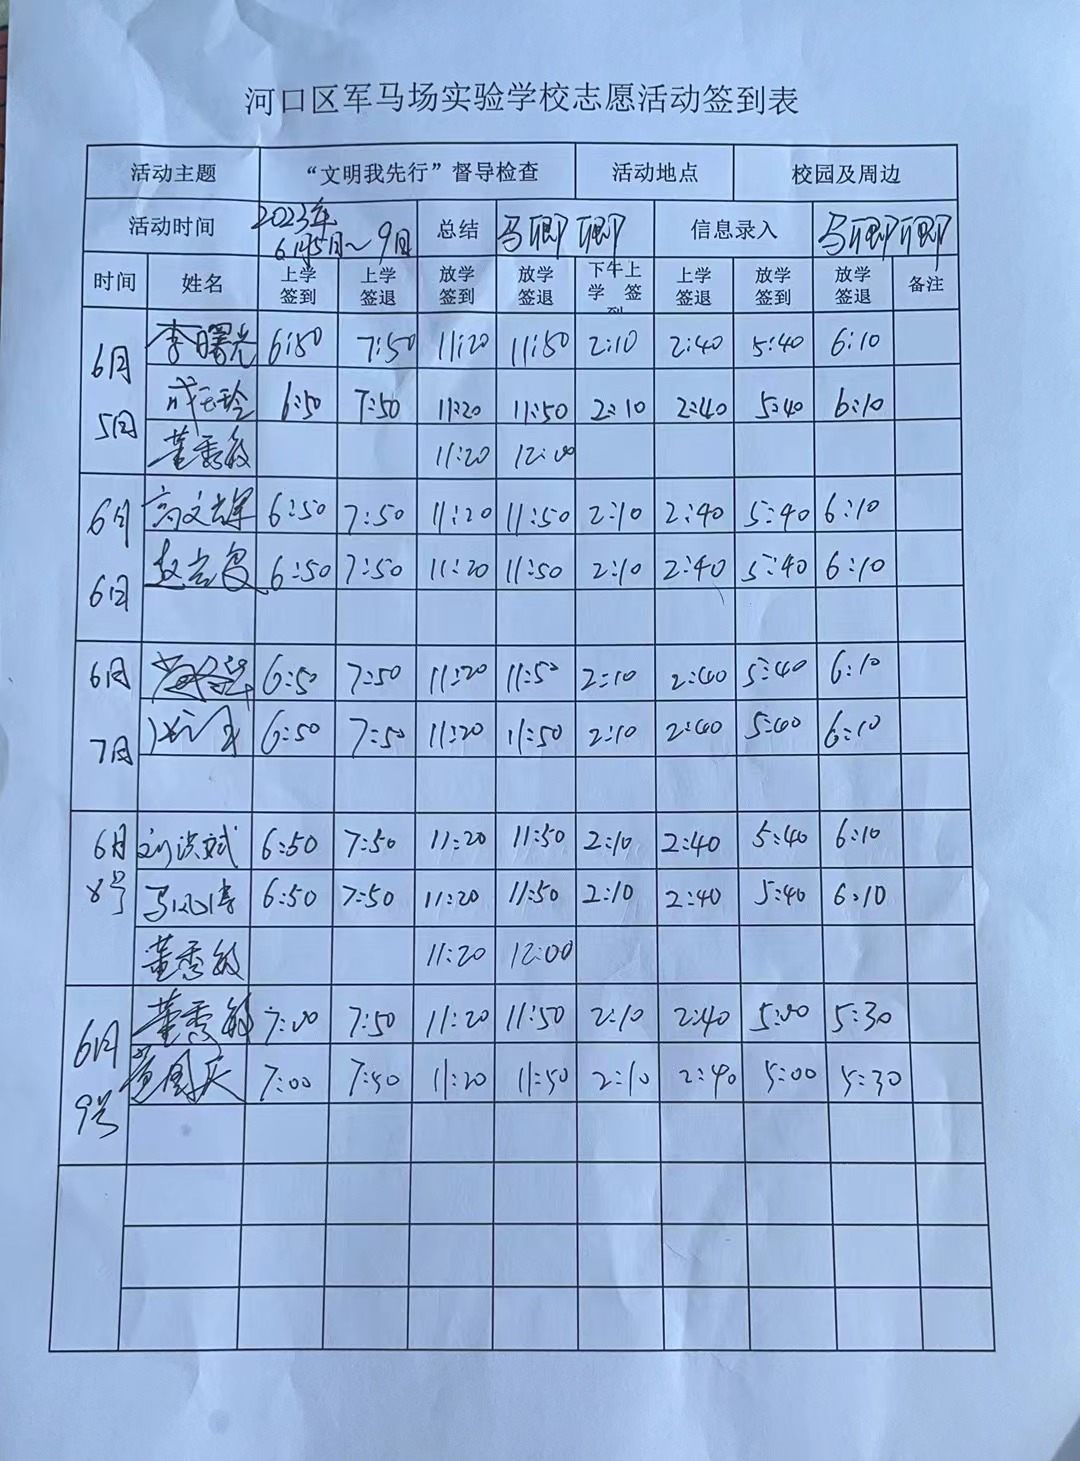 河口区军马场实验学校志愿活动签到表
活动主题 “文明我先行”督导检查 活动地点 校园及周边
活动时间 2023年6月5日～9日 总结 马卿卿 信息录入 马卿卿
时间 姓名 上学签到 上学签退 放学签到 放学签退 下午上学签到 上学签退 放学签到 放学签退 备注
6月5日 李曙光 6:50 7:50 11:20 11:50 2:10 2:40 5:40 6:10
成玉玲 6:50 7:50 11:20 11:50 2:10 2:40 5:40 6:10
董秀敏 11:20 12:00
6月6日 高文辉 6:50 7:50 11:20 11:50 2:10 2:40 5:40 6:10
赵 6:50 7:50 11:20 11:50 2:10 2:40 5:40 6:10
6月7日 6:50 7:50 11:20 11:50 2:10 2:40 5:40 6:10
6:50 7:50 11:20 11:50 2:10 2:40 5:40 6:10
6月8号 刘洪斌 6:50 7:50 11:20 11:50 2:10 2:40 5:40 6:10
马 6:50 7:50 11:20 11:50 2:10 2:40 5:40 6:10
董秀敏 11:20 12:00
6月9号 董秀敏 7:00 7:50 11:20 11:50 2:10 2:40 5:00 5:30
黄国庆 7:00 7:50 11:20 11:50 2:10 2:40 5:00 5:30